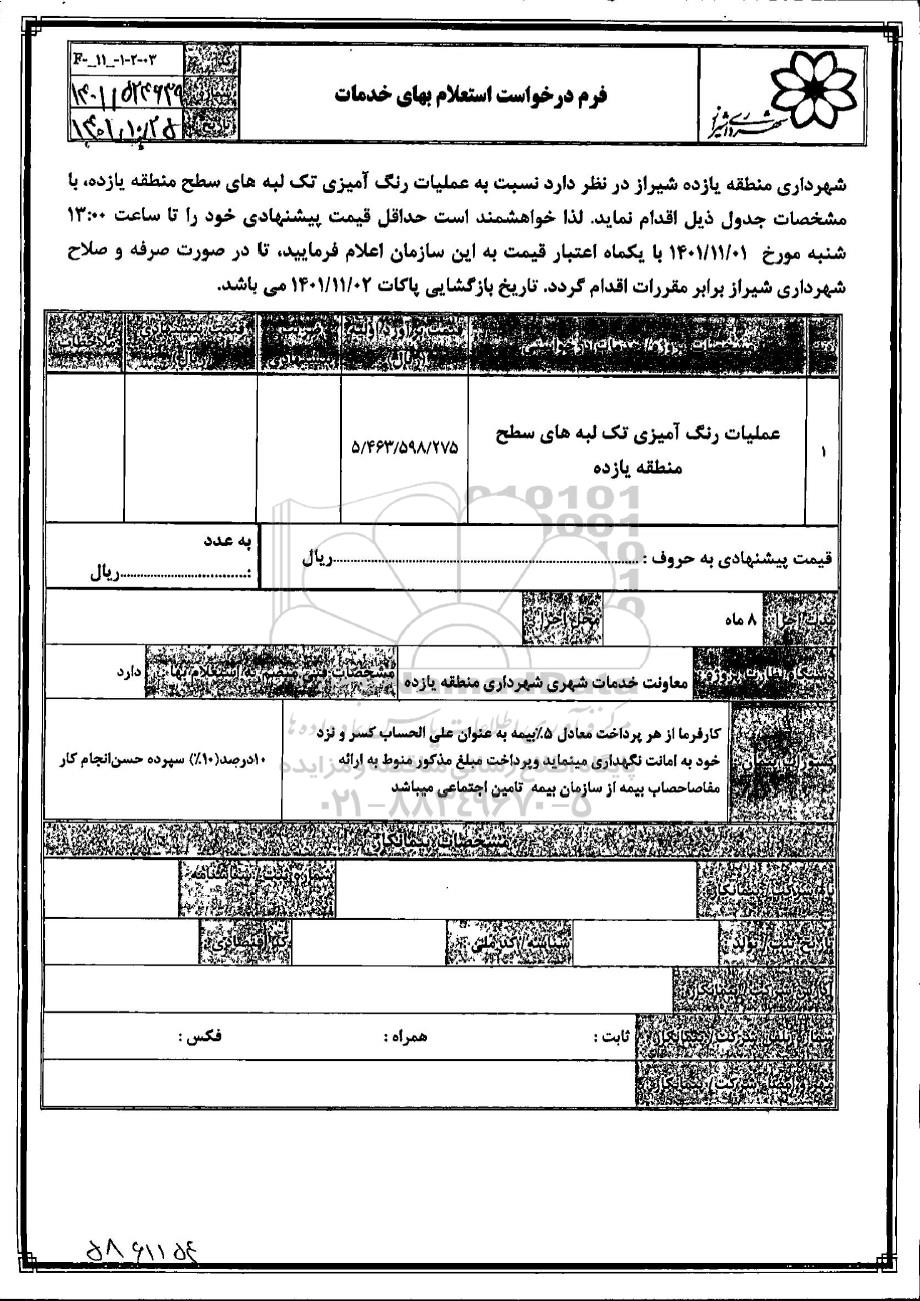 شهرداری شیراز
فرم درخواست استعلام بهای خدمات
F-_۱۱_-۱-۲-۰۳
شماره
تاریخ
شهرداری منطقه یازده شیراز در نظر دارد نسبت به عملیات رنگ آمیزی تک لبه های سطح منطقه یازده، با
مشخصات جدول ذیل اقدام نماید. لذا خواهشمند است حداقل قیمت پیشنهادی خود را تا ساعت ۱۳:۰۰
شنبه مورخ ۱۴۰۱/۱۱/۰۱ با یکماه اعتبار قیمت به این سازمان اعلام فرمایید، تا در صورت صرفه و صلاح
شهرداری شیراز برابر مقررات اقدام گردد. تاریخ بازگشایی پاکات ۱۴۰۱/۱۱/۰۲ می باشد.
ملاحظات
۱
عملیات رنگ آمیزی تک لبه های سطح
منطقه یازده
۵/۴۶۳/۵۹۸/۲۷۵
قیمت پیشنهادی به حروف : ................ریال
به عدد
:................ریال
مدت اجرا
۸ ماه
محل اجرا
معاونت خدمات شهری شهرداری منطقه یازده
مشخصات فنی ضمیمه به استعلام بها
دارد
کارفرما از هر پرداخت معادل ۵٪بیمه به عنوان علی الحساب کسر و نزد
خود به امانت نگهداری مینماید وپرداخت مبلغ مذکور منوط به ارائه
مفاصاحصاب بیمه از سازمان بیمه تامین اجتماعی میباشد
۱۰درصد(۱۰٪) سپرده حسن‌انجام کار
۰۲۱-۸۸۳۴۹۶۷۰-۵
مشخصات پیمانکار
نام شرکت/ پیمانکار
شماره ثبت/ شناسنامه
تاریخ ثبت/ تولد
شناسه/ کد ملی
کد اقتصادی
آدرس شرکت/ پیمانکار
شماره تلفن شرکت/ پیمانکار
ثابت :
همراه :
فکس :
مهر و امضاء شرکت/ پیمانکار